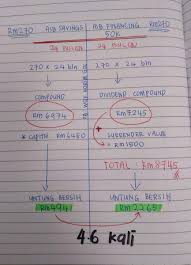 RM270 ASB SAVINGS
ASB FINANCING RM270
50K
24 BULAN
24 BULAN
270 X 24 bln
270 X 24 bln
COMPOUND
DIVIDEND COMPOUND
RM 6974
RM7245
* CAPITAL RM 6480
+ SURRENDER VALUE
= RM1500
TOTAL : RM8745
UNTUNG BERSIH
UNTUNG BERSIH
RM494
RM2265
4.6 kali